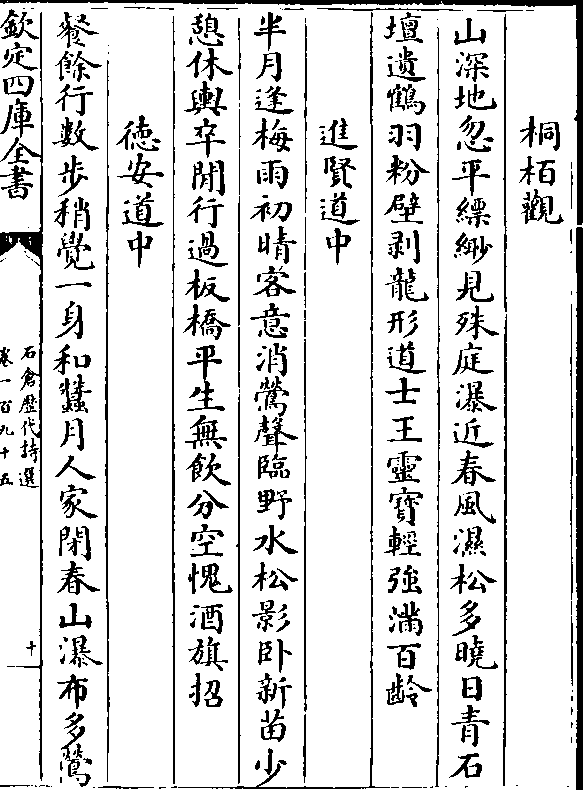 桐栢觀
山深地忽平縹緲見殊庭瀑近春風濕松多曉日青石
壇遺鶴羽粉壁剥龍形道士王靈寶輕強滿百齡
進賢道中
半月逢梅雨初晴客意消鶯聲臨野水松影卧新苗少
憩休輿卒閒行過板橋平生無飲分空愧酒旗招
德安道中
餐餘行數步稍覺一身和蠶月人家閉春山瀑布多鶯
欽定四庫全書
石倉歷代詩選
卷一百九十五
十